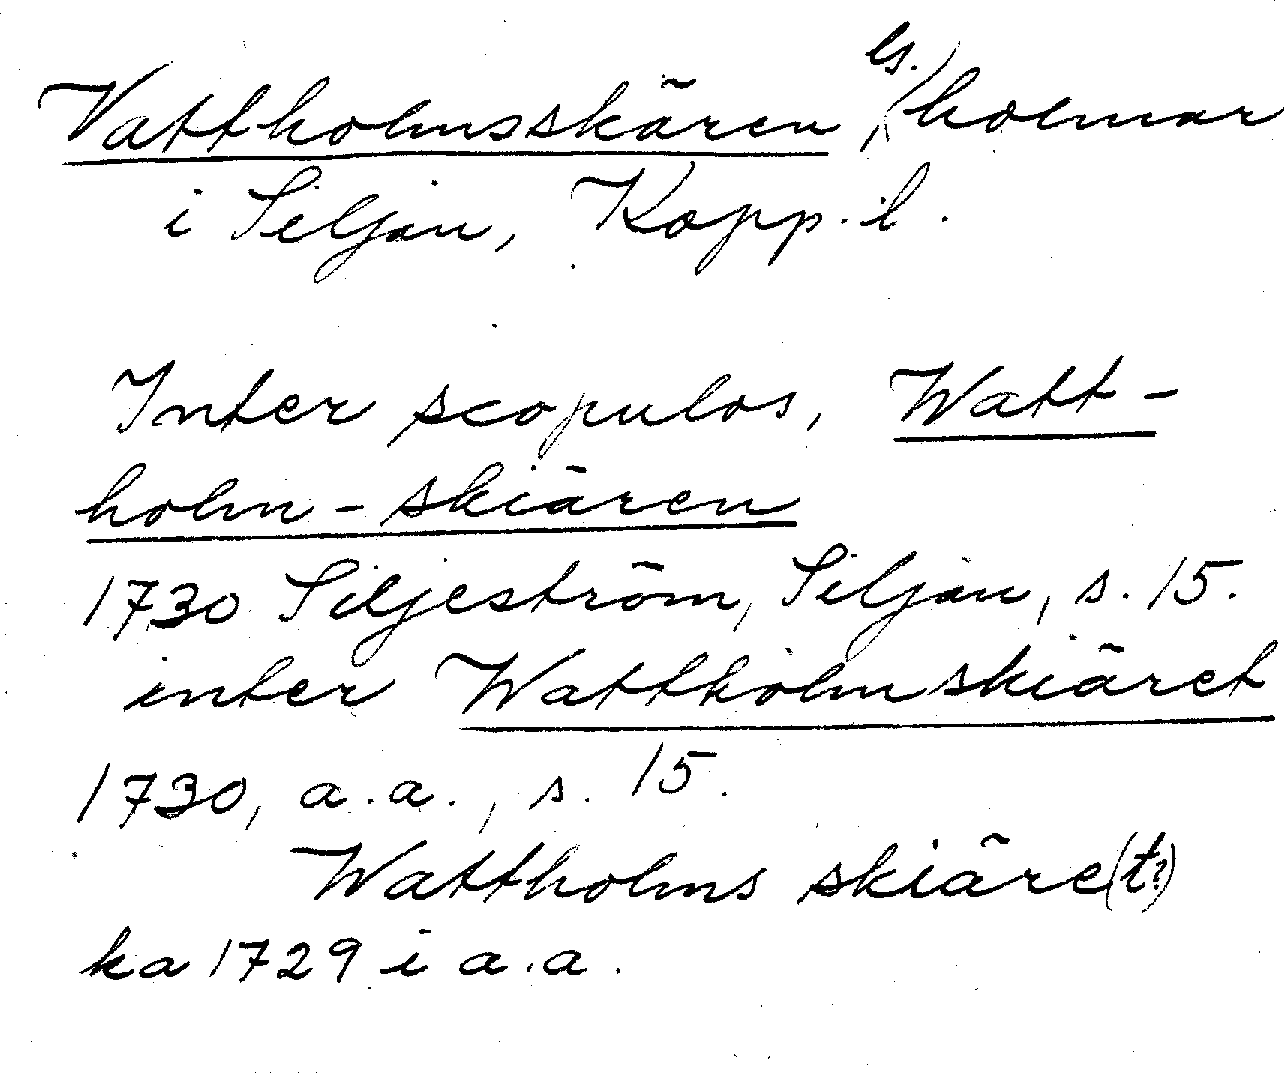 Vattholmsskären, (ls.) holmar
i Siljan, Kopp. l.
Inter scopulos, Watt-
holm-skiären
1730 Siljeström, Siljan, s. 15.
inter Wattholmskiäret
1730, a.a., s. 15.
Wattholms skiäre(t?)
ka 1729 i a.a.